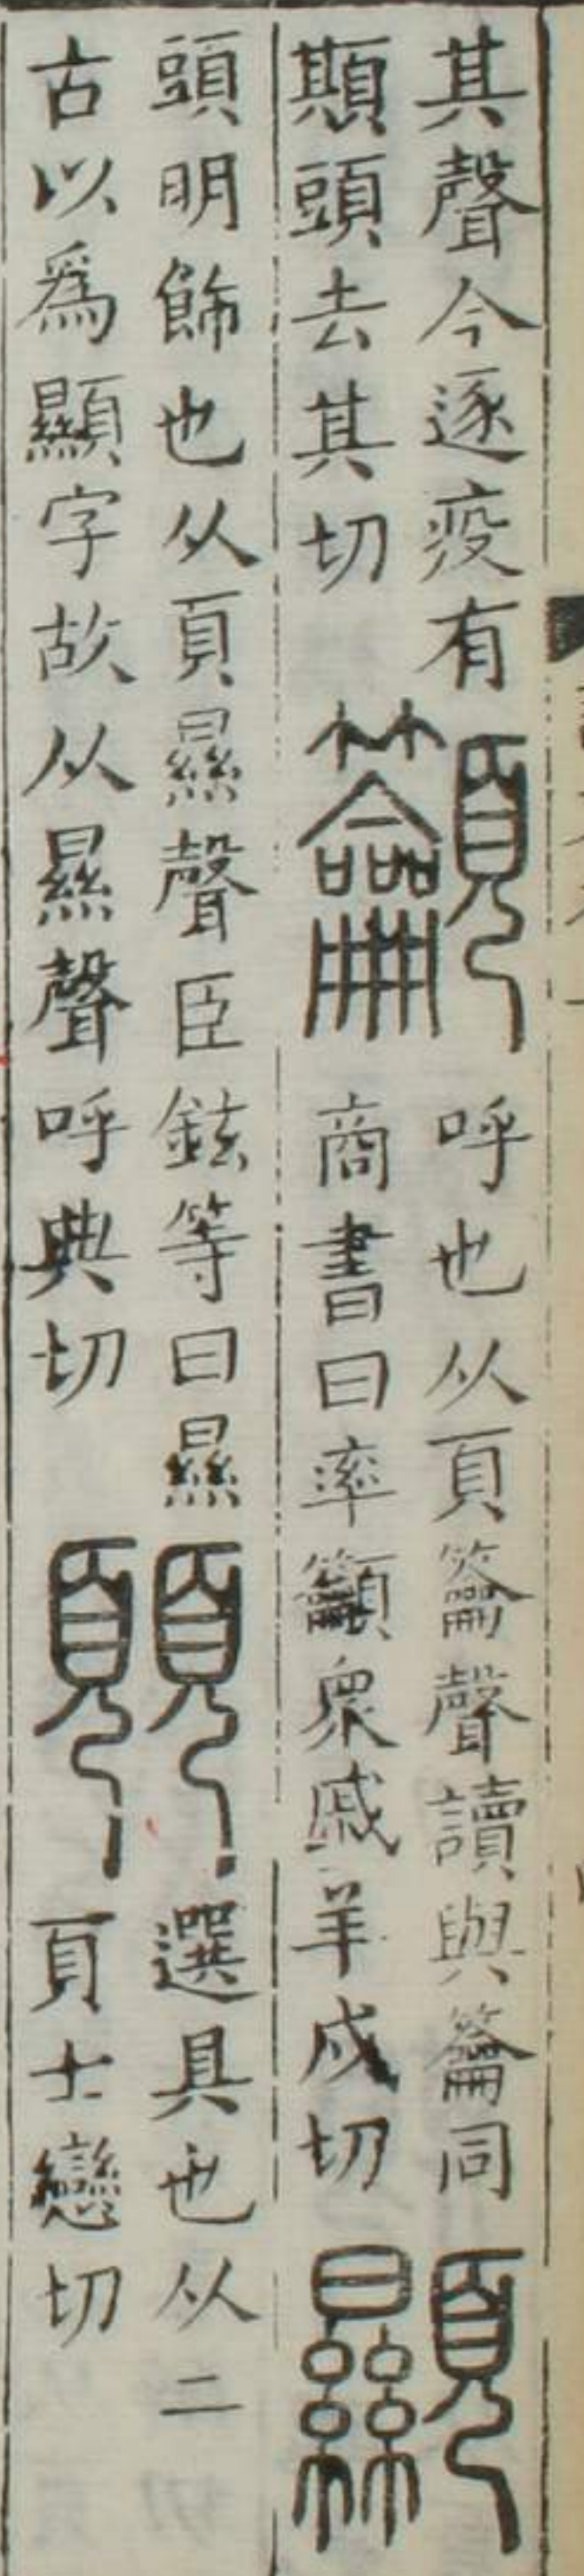 其聲今逐疫有
䫏頭去其切
籲
呼也从頁籥聲讀與籥同
商書曰率籲衆戚羊戍切
顯
頭明飾也从頁㬎聲臣鉉等曰㬎
古以爲顯字故从㬎聲呼典切
顨
選具也从二
頁士戀切